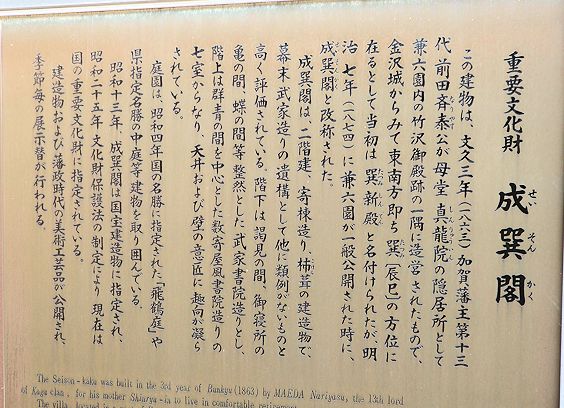 重要文化財 成巽閣
せいそんかく
この建物は、文久三年（一八六三）加賀藩主第十三
代 前田斉泰公が母堂 真龍院の隠居所として
兼六園内の竹沢御殿跡の一隅に造営されたもので、
金沢城からみて東南方即ち 巽（辰巳）の方位に
在るとして当初は 巽新殿 と名付けられたが、明
治 七年（一八七四）に兼六園が一般公開された時に、
成巽閣と改称された。
成巽閣は、二階建、寄棟造り、柿葺の建造物で、
幕末武家造りの遺構として他に類例がないものと
高く評価されている。階下は謁見の間、御寝所の
亀の間、蝶の間等整然とした武家書院造りとし、
階上は群青の間を中心とした数寄屋風書院造りの
七室からなり、天井および壁の意匠に 趣向が凝ら
されている。
庭園は、昭和四年国の名勝に指定された「飛鶴庭」や
県指定名勝の中庭等建物を取り囲んでいる。
昭和十三年、成巽閣は国宝建造物に指定され、
昭和二十五年文化財保護法の制定により、現在は
国の重要文化財に指定されている。
建造物および藩政時代の美術工芸品が公開され、
季節毎の展示替が行われる。
The Seison-kaku was built in the 3rd year of Bunkyu (1863) by MAEDA Nariyasu, the 13th lord
of Kaga clan, for his mother Shinryu-in to live in comfortable retirement
The villa, located in